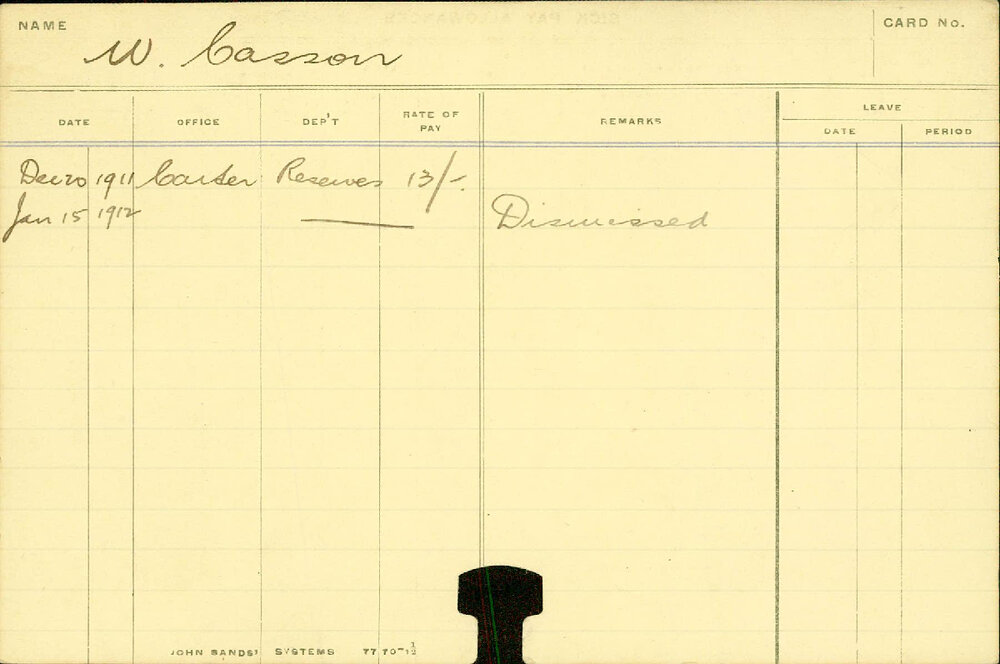 NAME
W. Casson
CARD No.
DATE OFFICE DEP'T RATE OF PAY REMARKS LEAVE
DATE PERIOD
Dec 20 1911 Carter Reserves 13/-.
Jan 15 1912 Dismissed
JOHN SANDS' SYSTEMS 77 70-